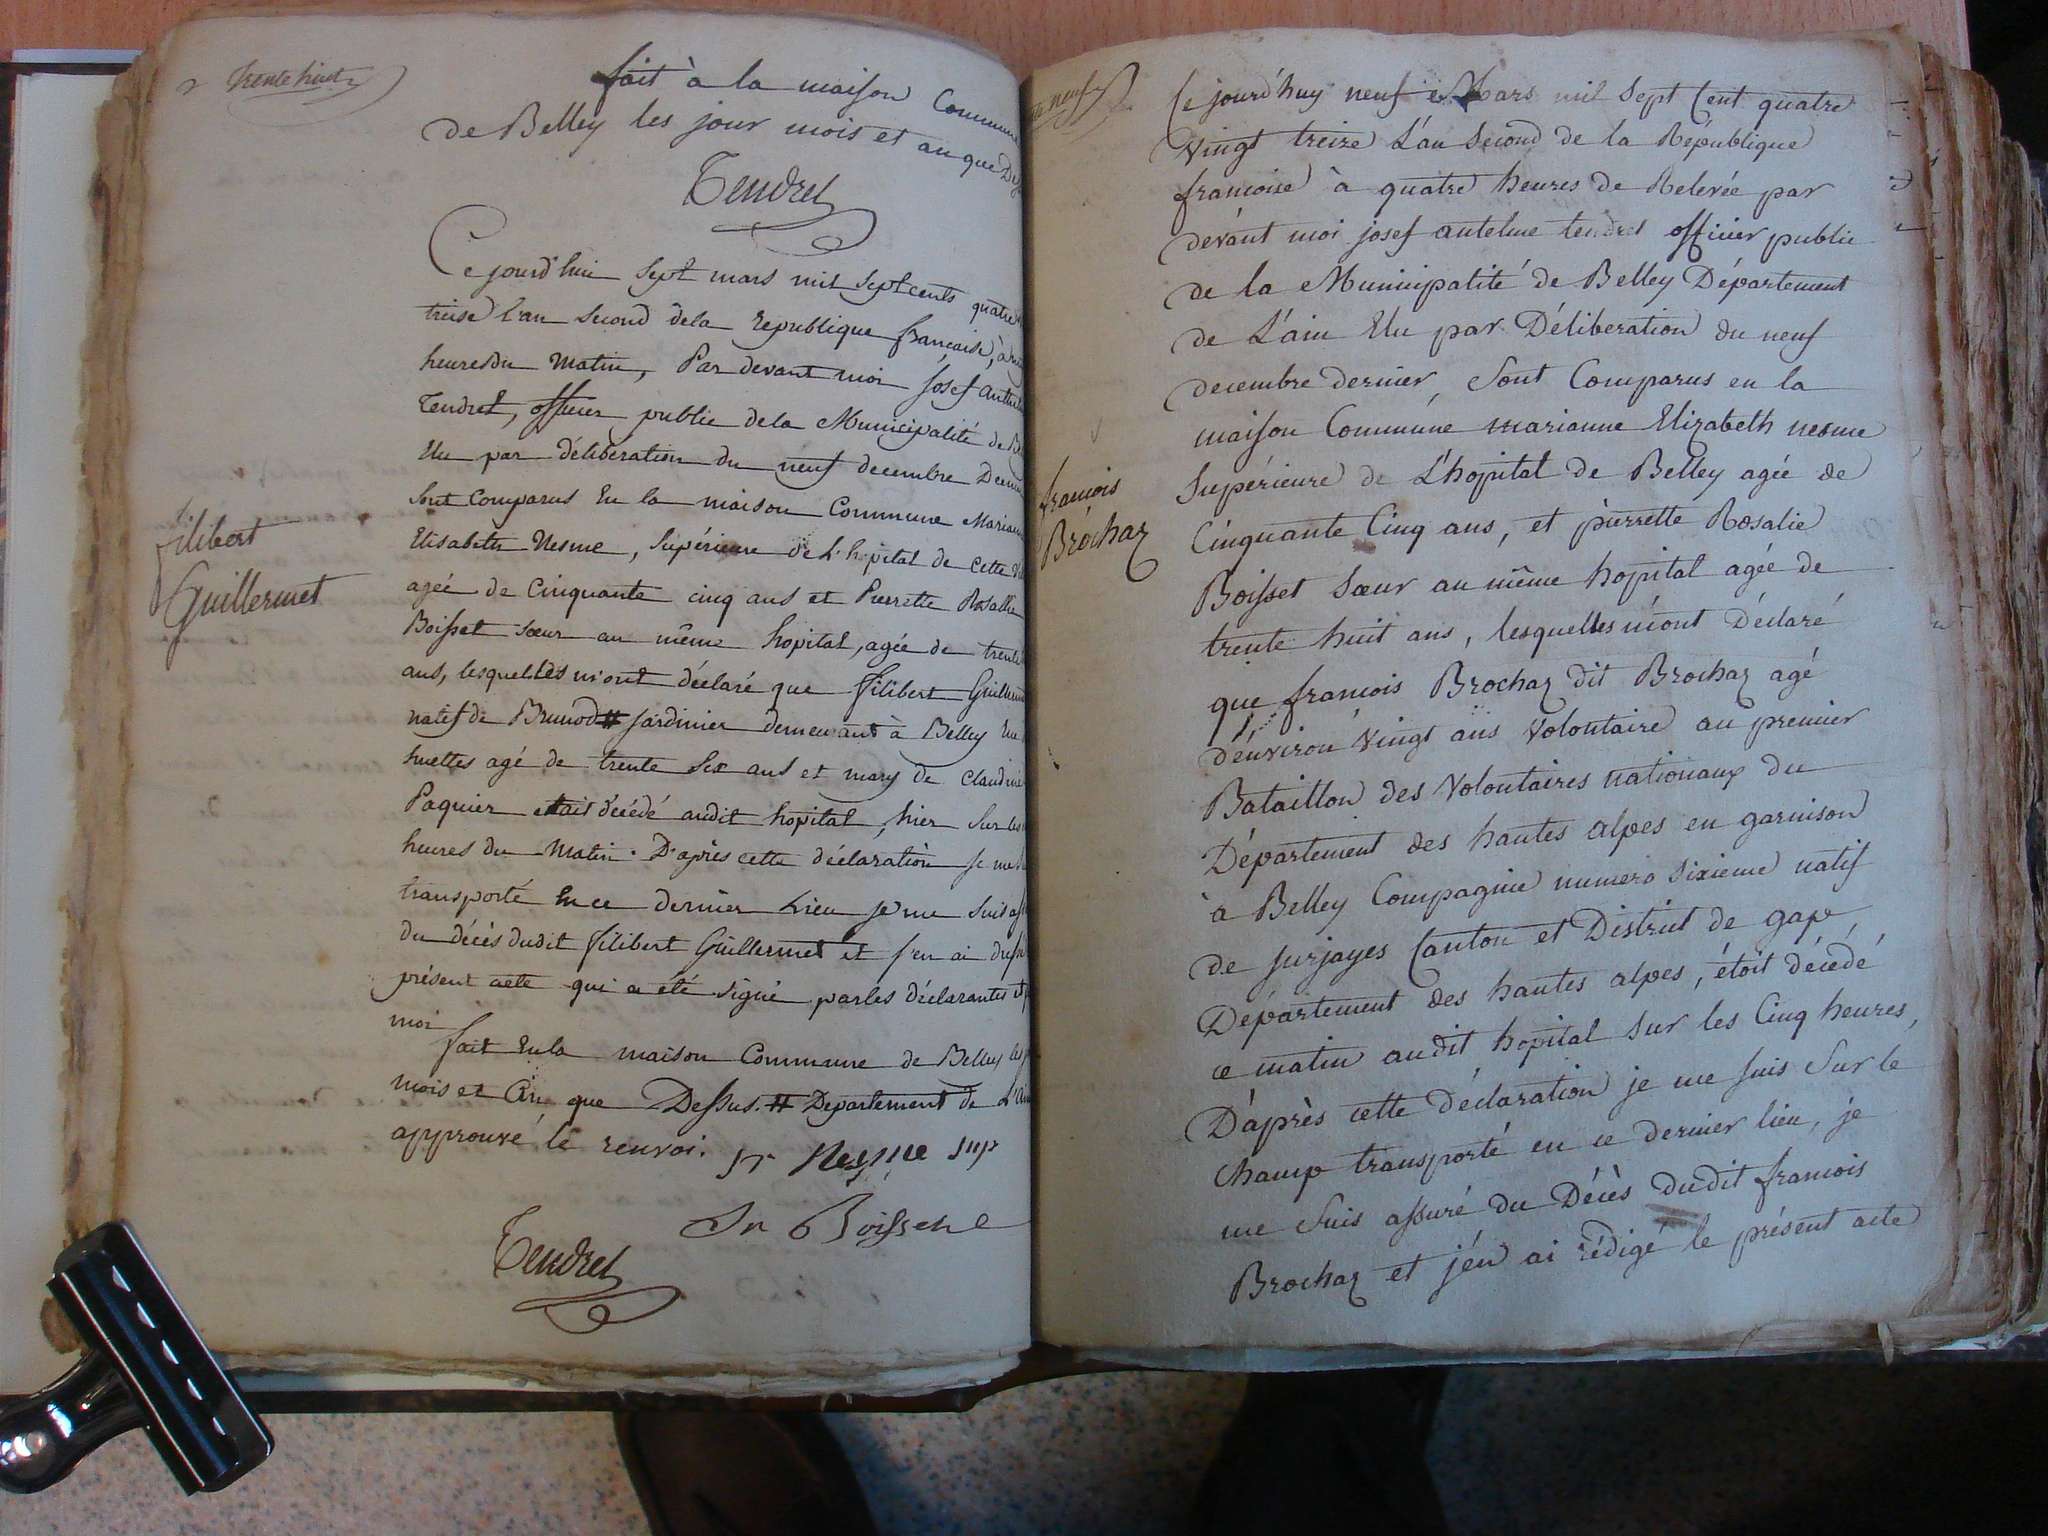 trente huit
fait à la maison Commune
de Belley les jour mois et an que
Tendret
Ce jourd'hui sept mars mil sept cents quatre
treise l'an second dela republique francaise, à
heures du matin, Par devant moi Josef
Tendret, officier public dela Municipalité de
Elu par déliberation du neuf decembre
sont comparus En la maison Commune
Elisabeth Nesme, supérieure de L'hopital de cette
agée de Cinquante cinq ans et Pierrette Rosallie
Boisset sœur au même hopital, agée de
ans, lesquelles m'ont déclaré que filibert
natif de Brunod # jardinier demeurant à Belley
agé de trente six ans et mary de claudine
Paquier etait décédé audit hopital, hier sur les
heures du matin. D'après cette déclaration je me
transporté En ce dernier Lieu je me suis
du décès dudit filibert Guillermet et j'en ai
présent acte qui a été signé par les déclarantes et
moi
fait En la maison Commune de Belley
mois et an que Dessus. # Departement de
approuvé le renvoi. sr Nesme sup
Tendret
filibert
Guillermet
neuf
Ce jourd'huy neuf Mars mil sept Cent quatre
vingt treize L'an second de la République
francoise à quatre heures de Relevée par
dévant moi josef antelme tendret officier public
de la Municipalité de Belley Département
de L'ain Elu par Déliberation du neuf
decembre dernier, Sont Comparus en la
maison Commune marianne Elizabeth nesme
Supérieure de L'hopital de Belley agée de
Cinquante Cinq ans, et pierrette Rosalie
Boisset Sœur au même hopital agée de
trente huit ans, lesquelles m'ont Déclaré
que francois Brochaz dit Brochaz agé
d'énviron vingt ans Volontaire au premier
Bataillon des Volontaires nationaux du
Département des hautes alpes en garnison
à Belley Compagnie numero sixieme natif
de jurjayes Canton et District de gap
Département des hautes alpes, étoit décédé
ce matin audit hopital sur les Cinq heures,
D'après cette déclaration je me suis Sur le
champ transporté en ce dernier lieu, je
me Suis assuré du Décès dudit francois
Brochaz et j'én ai rédigé le présent acte
francois
Brochaz